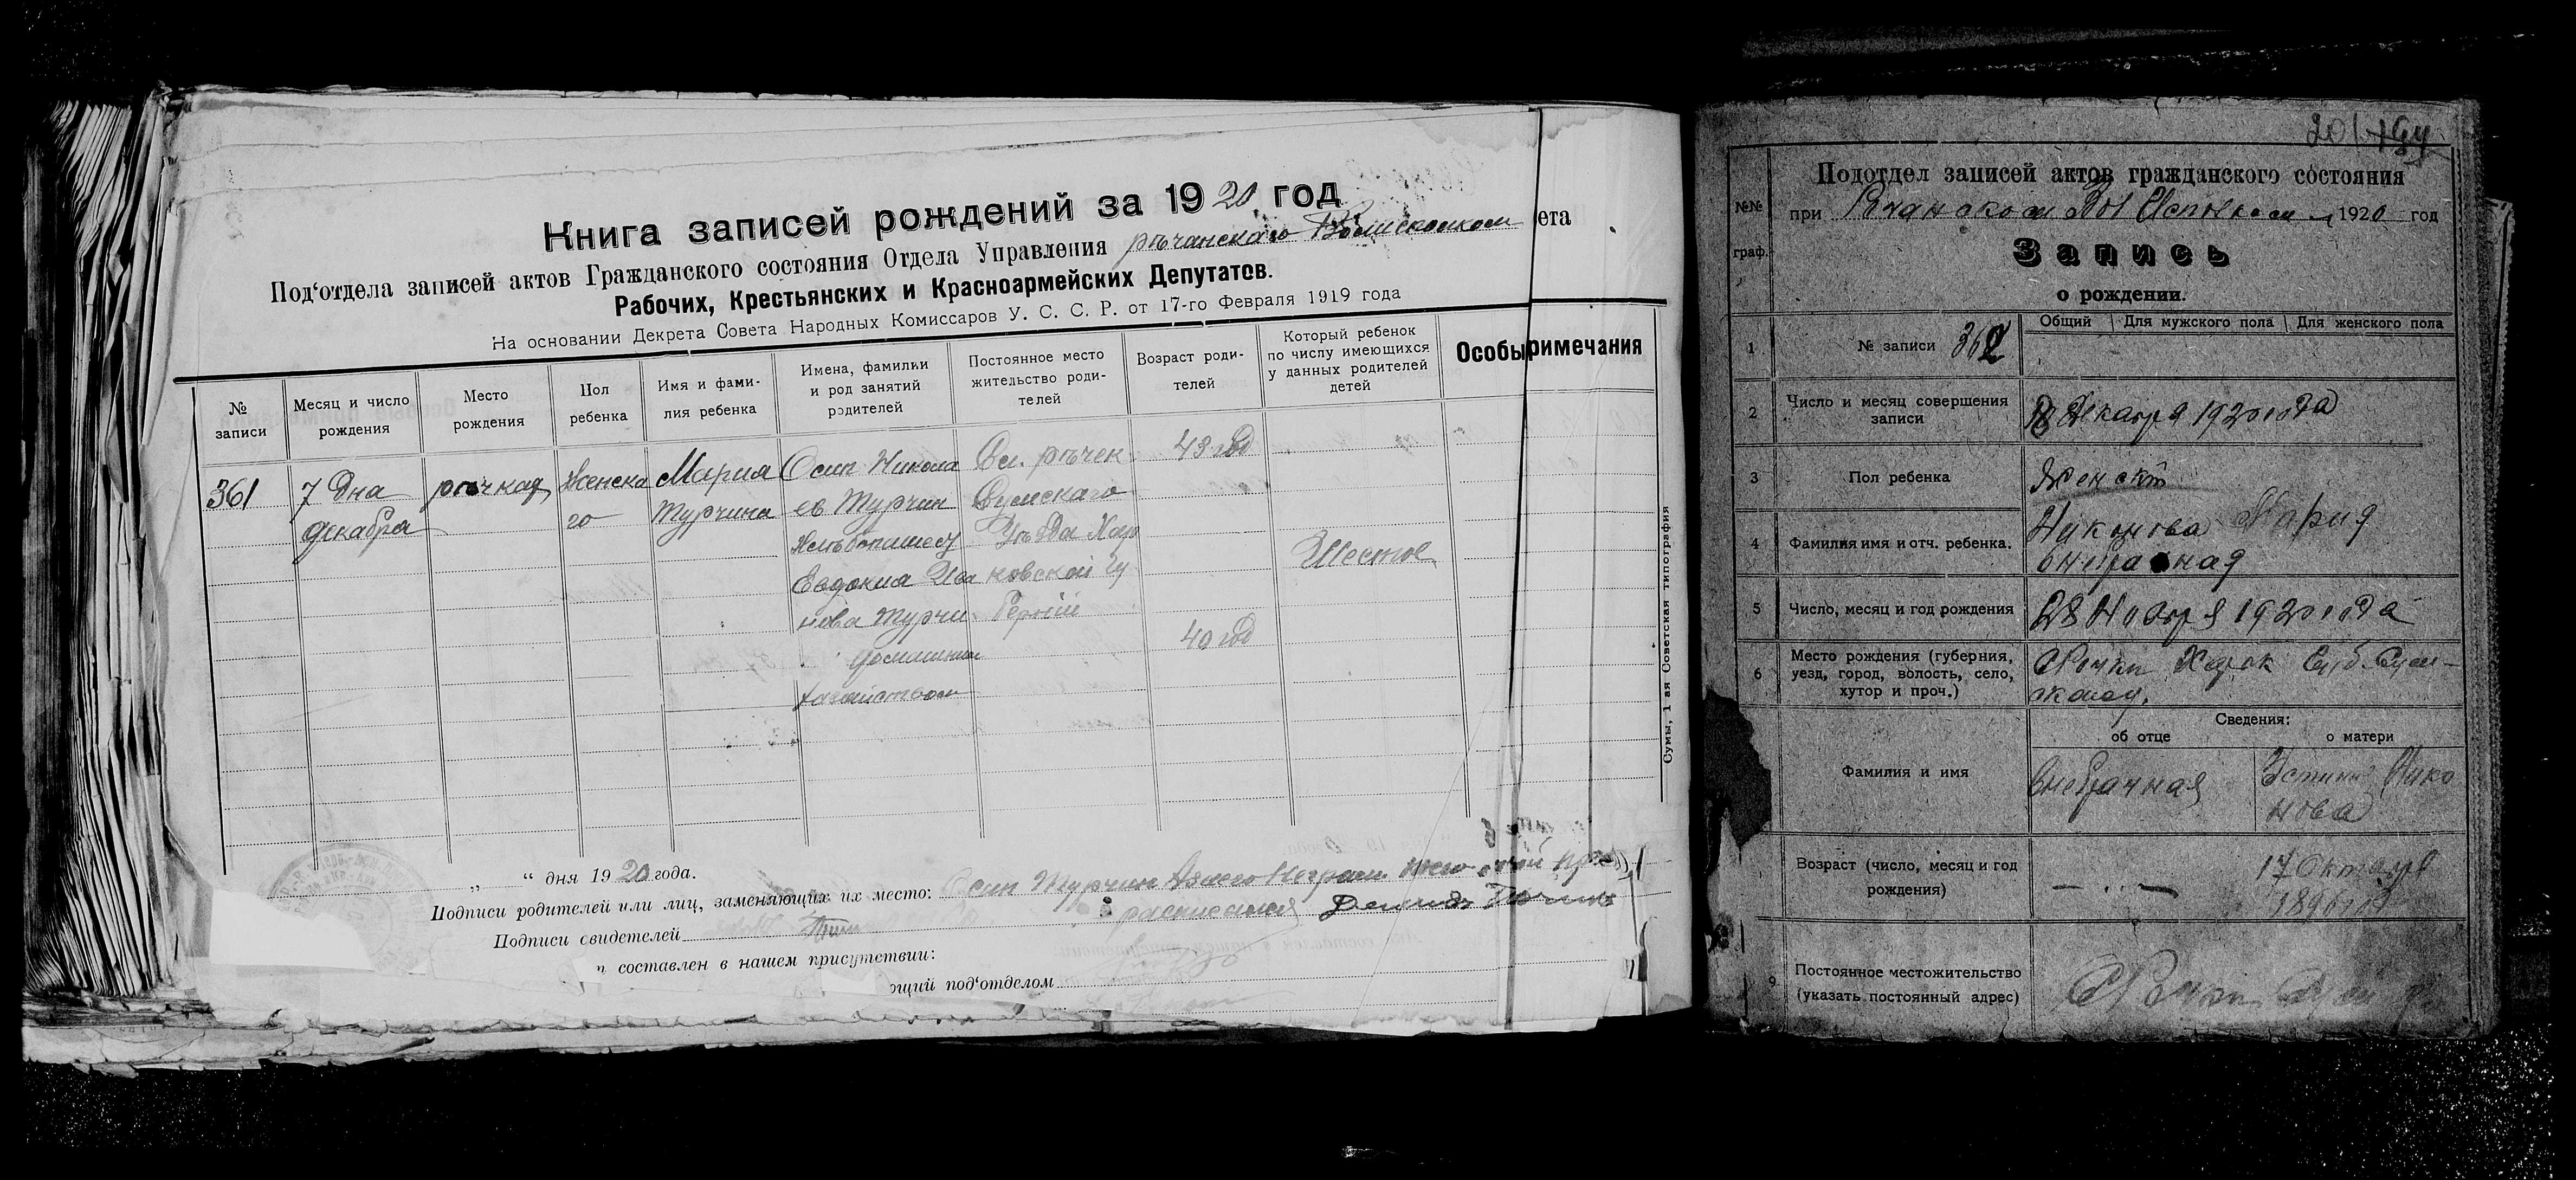 Книга записей рождений за 1920 год
Под‘отдела записей актов Гражданского состояния Отдела Управления рѣчанскаго Волисполком ета
Рабочих, Крестьянских и Красноармейских Депутатов.
На основании Декрета Совета Народных Комиссаров У. С. С. Р. от 17-го Февраля 1919 года
№ записи
Месяц и число рождения
Место рождения
Пол ребенка
Имя и фами-
лия ребенка
Имена, фамилии
и род занятий
родителей
Постоянное место
жительство роди-
телей
Возраст роди-
телей
Который ребенок
по числу имеющихся
у данных родителей
детей
Особы римечания
361
7 дня
декабря
рѣчках
Женска
го
Мария
Турчина
Осип Никола
ев Турчин
Хлѣбопашец
Евдокия Ива
нова Турчи
домашним
Сл. рѣчек
Сумскаго
Уѣзда Хар
ковской Гу
43 год
40 год
Шестой
„ “ дня 1920 года.
Подписи родителей или лиц, заменяющих их место: Осип Турчин
расписался
Подписи свидетелей
составлен в нашем присутствии:
ощий под‘отделом
Сумы, 1 ая Советская типография
201
Подотдел записей актов гражданского состояния
при 1920 год
№№
граф.
Запись
о рождении.
Общий
Для мужского пола
Для женского пола
1
№ записи 362
2
Число и месяц совершения
записи
18 Декабря 1920 года
3
Пол ребенка
Женскт
4
Фамилия имя и отч. ребенка.
Никонова Мария
внебрачная
5
Число, месяц и год рождения
28 Ноября 1920 года
6
Место рождения (губерния,
уезд, город, волость, село,
хутор и проч.)
Речки Харк Губ. Сум-
Сведения:
об отце
о матери
Фамилия и имя
Внебрачная
Устиния Нико
нова
Возраст (число, месяц и год
рождения)
— ... —
17 Октября
1896 г
9
Постоянное местожительство
(указать постоянный адрес)
Речки